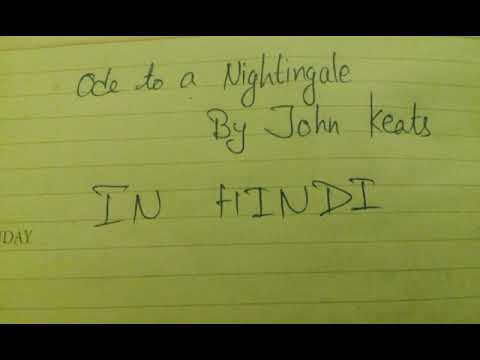 Ode to a Nightingale
By John Keats
IN HINDI
NDAY